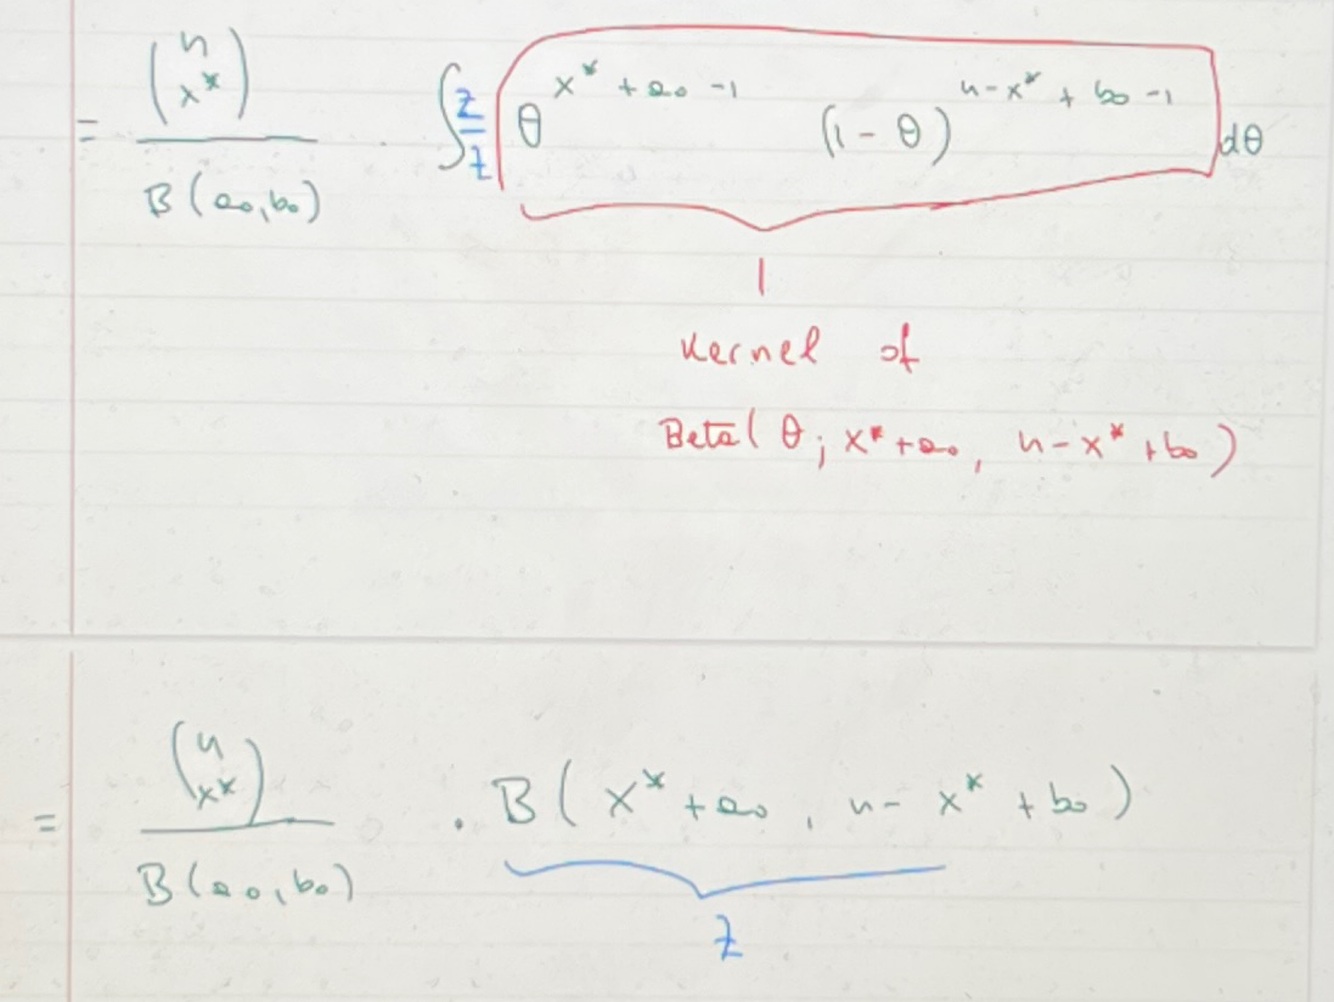 = \frac{\binom{n}{x^*}}{B(a_0, b_0)} \int \frac{z}{z} θ^{x^* + a_0 - 1} (1 - θ)^{n - x^* + b_0 - 1} dθ
Kernel of
Beta( θ; x^* + a_0, n - x^* + b_0 )
= \frac{\binom{n}{x^*}}{B(a_0, b_0)} . B( x^* + a_0 , n - x^* + b_0 )
z